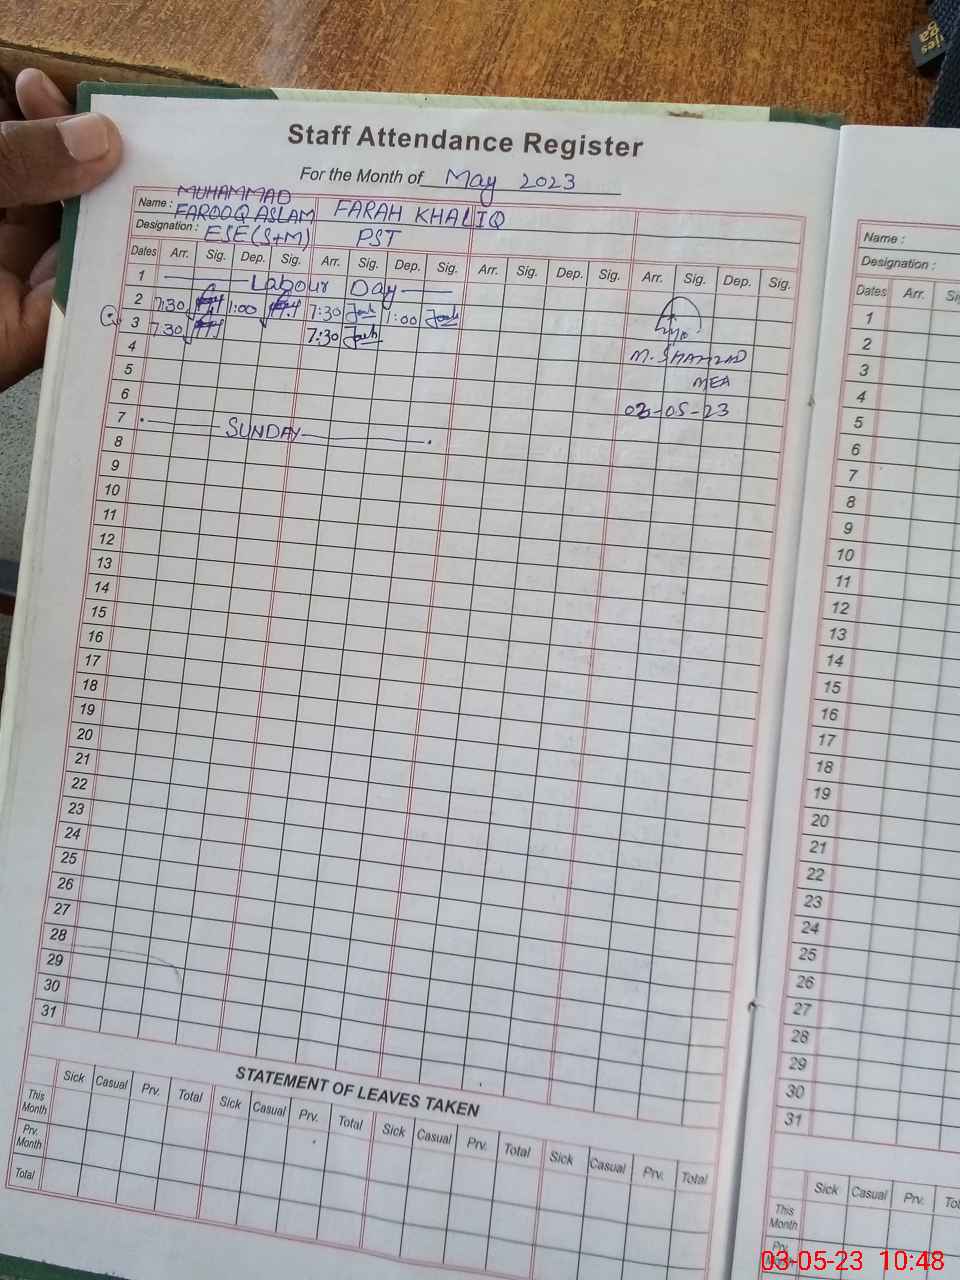 Staff Attendance Register
For the Month of May 2023
Name : MUHAMMAD FAROOQ ASLAM FARAH KHALIQ
Designation : ESE(S+M) PST
Dates Arr. Sig. Dep. Sig. Arr. Sig. Dep. Sig. Arr. Sig. Dep. Sig. Arr. Sig. Dep. Sig.
1 Labour Day
2 7:30 1:00 7:30 1:00
3 7:30 7:30
4
M. SHAHZAD
5
MEA
6
03-05-23
7 SUNDAY
8
9
10
11
12
13
14
15
16
17
18
19
20
21
22
23
24
25
26
27
28
29
30
31
STATEMENT OF LEAVES TAKEN
Sick Casual Prv. Total Sick Casual Prv. Total Sick Casual Prv. Total Sick Casual Prv. Total
This Month
Prv. Month
Total
Name :
Designation :
Dates Arr.
1
2
3
4
5
6
7
8
9
10
11
12
13
14
15
16
17
18
19
20
21
22
23
24
25
26
27
28
29
30
31
Sick Casual Prv.
This Month
Prv.
03-05-23 10:48